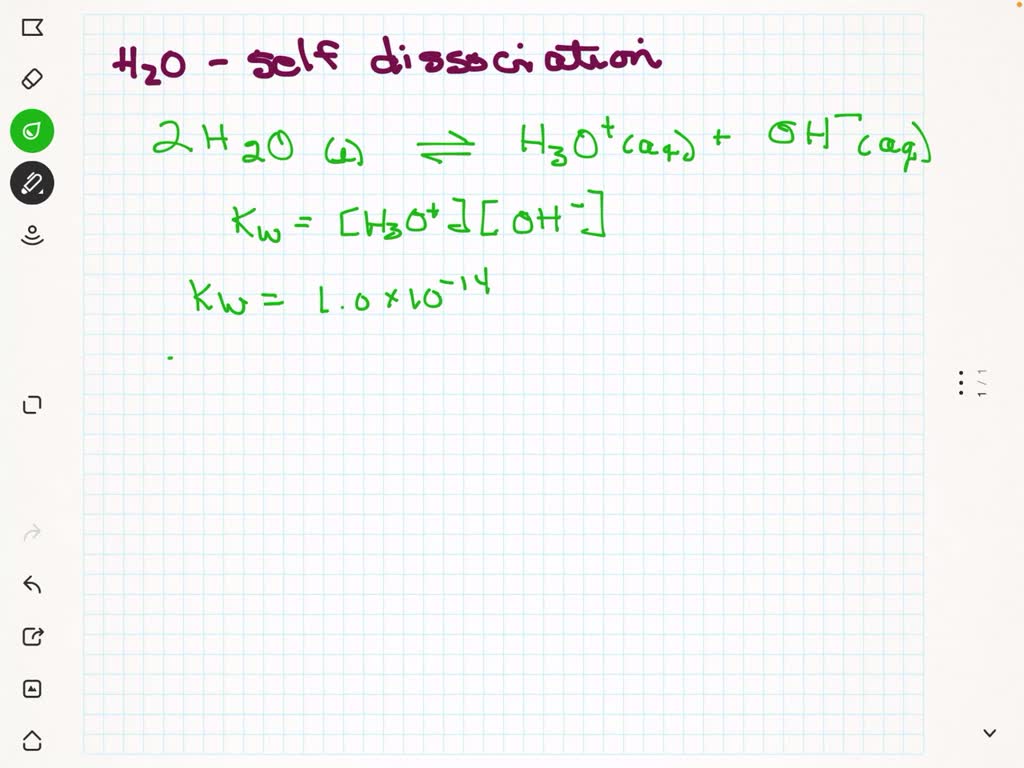 H₂O - self dissociation
2H₂O (l) ⇌ H₃O⁺(aq) + OH⁻(aq)
Kw = [H₃O⁺][OH⁻]
Kw = 1.0 × 10⁻¹⁴
1 / 1